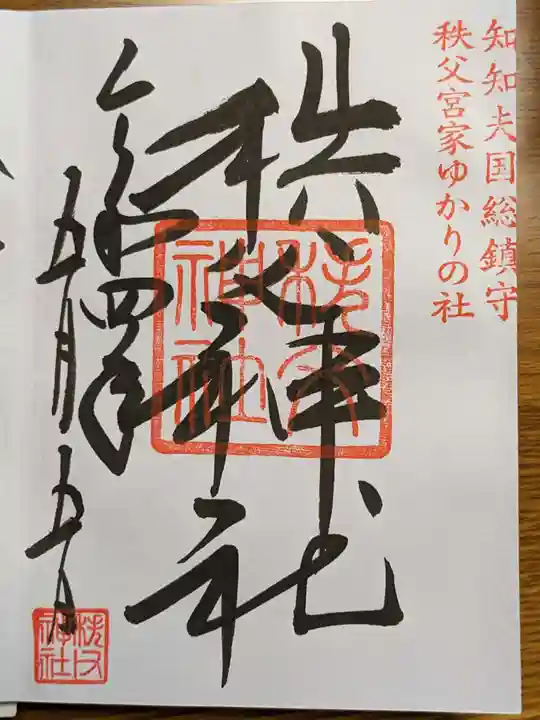 知知夫国総鎮守
秩父宮家ゆかりの社
秩父神社
秩父
神社
令和四年
五月五日
秩父
神社